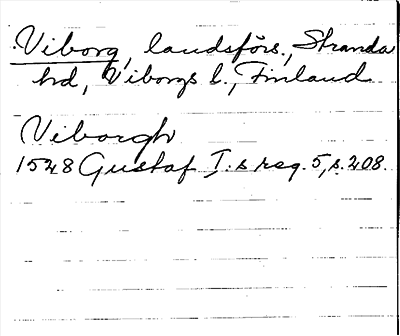 Viborg, landsförs., Stranda
hd, Viborgs l., Finland
Viborgh
1528 Gustaf I:s reg. 5, s. 208.